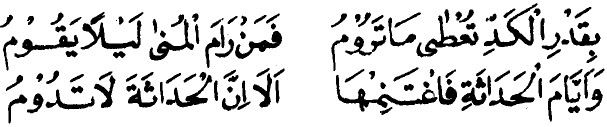 بِقَدْرِ الْكَدِّ تُعْطٰى مَا تَرُوْمُ فَمَنْ رَامَ الْمُنٰى لَيْلًا يَقُوْمُ
وَاَيَّامَ الْحَدَاثَةِ فَاغْتَنِمْهَا اَلَا اِنَّ الْحَدَاثَةَ لَا تَدُوْمُ